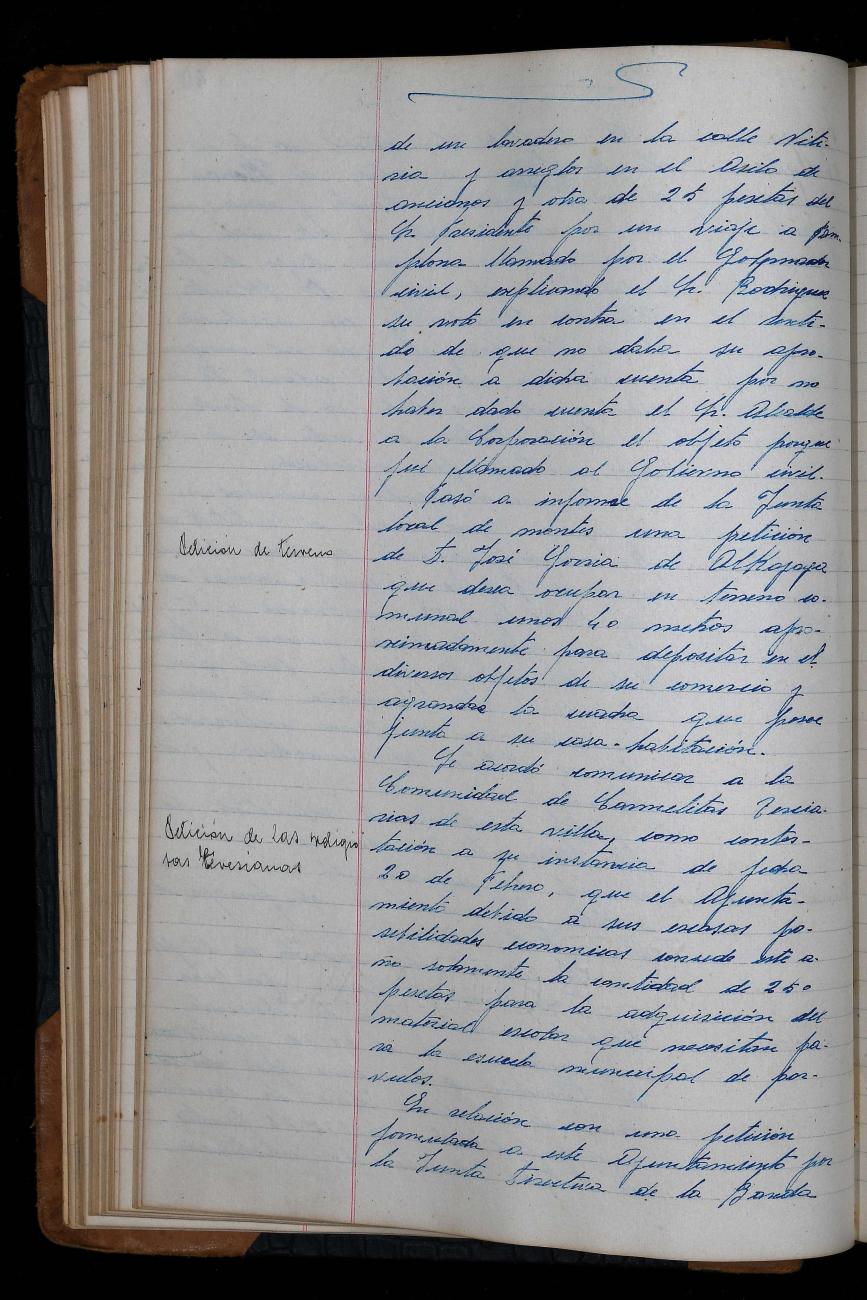 de un lavadero en la calle Niti-
ria y arreglos en el Asilo de
ancianos y otra de 25 pesetas del
Sr. Presidente por un viaje a Pam-
plona llamado por el Gobernador
civil, explicando el Sr. Rodriguez
su voto en contra en el senti-
do de que no daba su apro-
bación a dicha cuenta por no
haber dado cuenta el Sr. Alcalde
a la Corporación el objeto porque
fué llamado al Gobierno civil.
Pasó a informe de la Junta
local de montes una petición
Petición de terreno
de D. José Goenia de
que desea ocupar en terreno co-
munal unos 40 metros apro-
ximadamente para depositar en el
diversos objetos de su comercio y
agrandar la cuadra que posee
junto a su casa-habitación.
Se acordó comunicar a la
Comunidad de Carmelitas Tercia-
Petición de las religio
sas Teresianas
rias de esta villa y como contes-
tación a su instancia de fecha
20 de Febrero, que el Ayunta-
miento debido a sus escasas po-
sibilidades economicas concede este a-
ño solamente la cantidad de 250
pesetas para la adquisición del
material escolar que necesitan pa-
ra la escuela municipal de par-
vulos.
En relación con una petición
formulada a este Ayuntamiento por
la Junta Directiva de la Banda